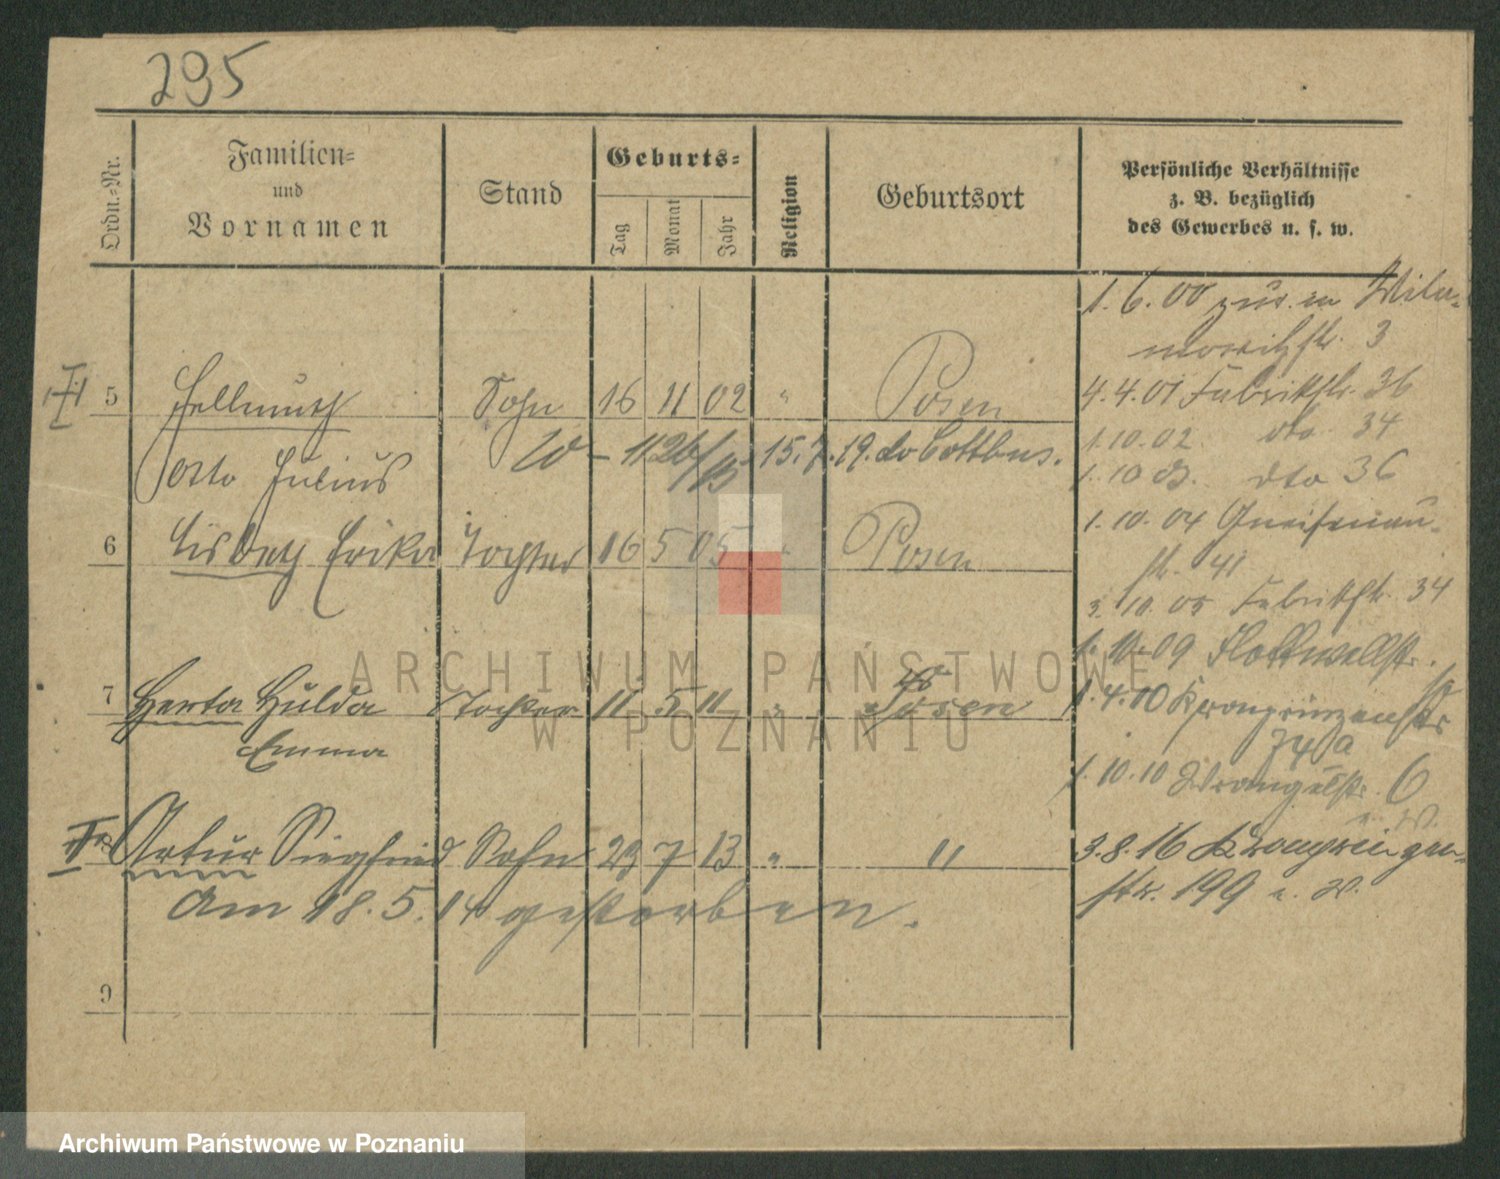 295
Ordn.-Nr.
Familien=
und
Vornamen
Stand
Geburts=
Tag
Monat
Jahr
Religion
Geburtsort
Persönliche Verhältnisse
z. B. bezüglich
des Gewerbes u. s. w.
1. 6. 00 zur. in
3
5 Hellmuth Sohn 16 11 02 " Posen
4. 4. 01 Fabrikstr. 36
Otto Julius
15. 7. 19. Cottbus.
1. 10. 02 dto 34
1. 10 03. dto 36
6 Lisbeth Erika Tochter 16 5 05 " Posen
1. 10. 04 Gneisenau-
str. 41
10. 05 Fabrikstr. 34
1. 10. 09 Flottwellstr.
7 Herta Hulda Tochter 11 5 11 " Posen
1. 4. 10 Kronprinzenstr
Emma
1. 10. 10 Wrangelstr. 6
Artur Siegfried Sohn 29 7 13 " "
3. 8. 16 Kronprinzen-
str. 199
Am 18. 5. 14 gestorben.
9
ARCHIWUM PAŃSTWOWE
W POZNANIU
Archiwum Państwowe w Poznaniu